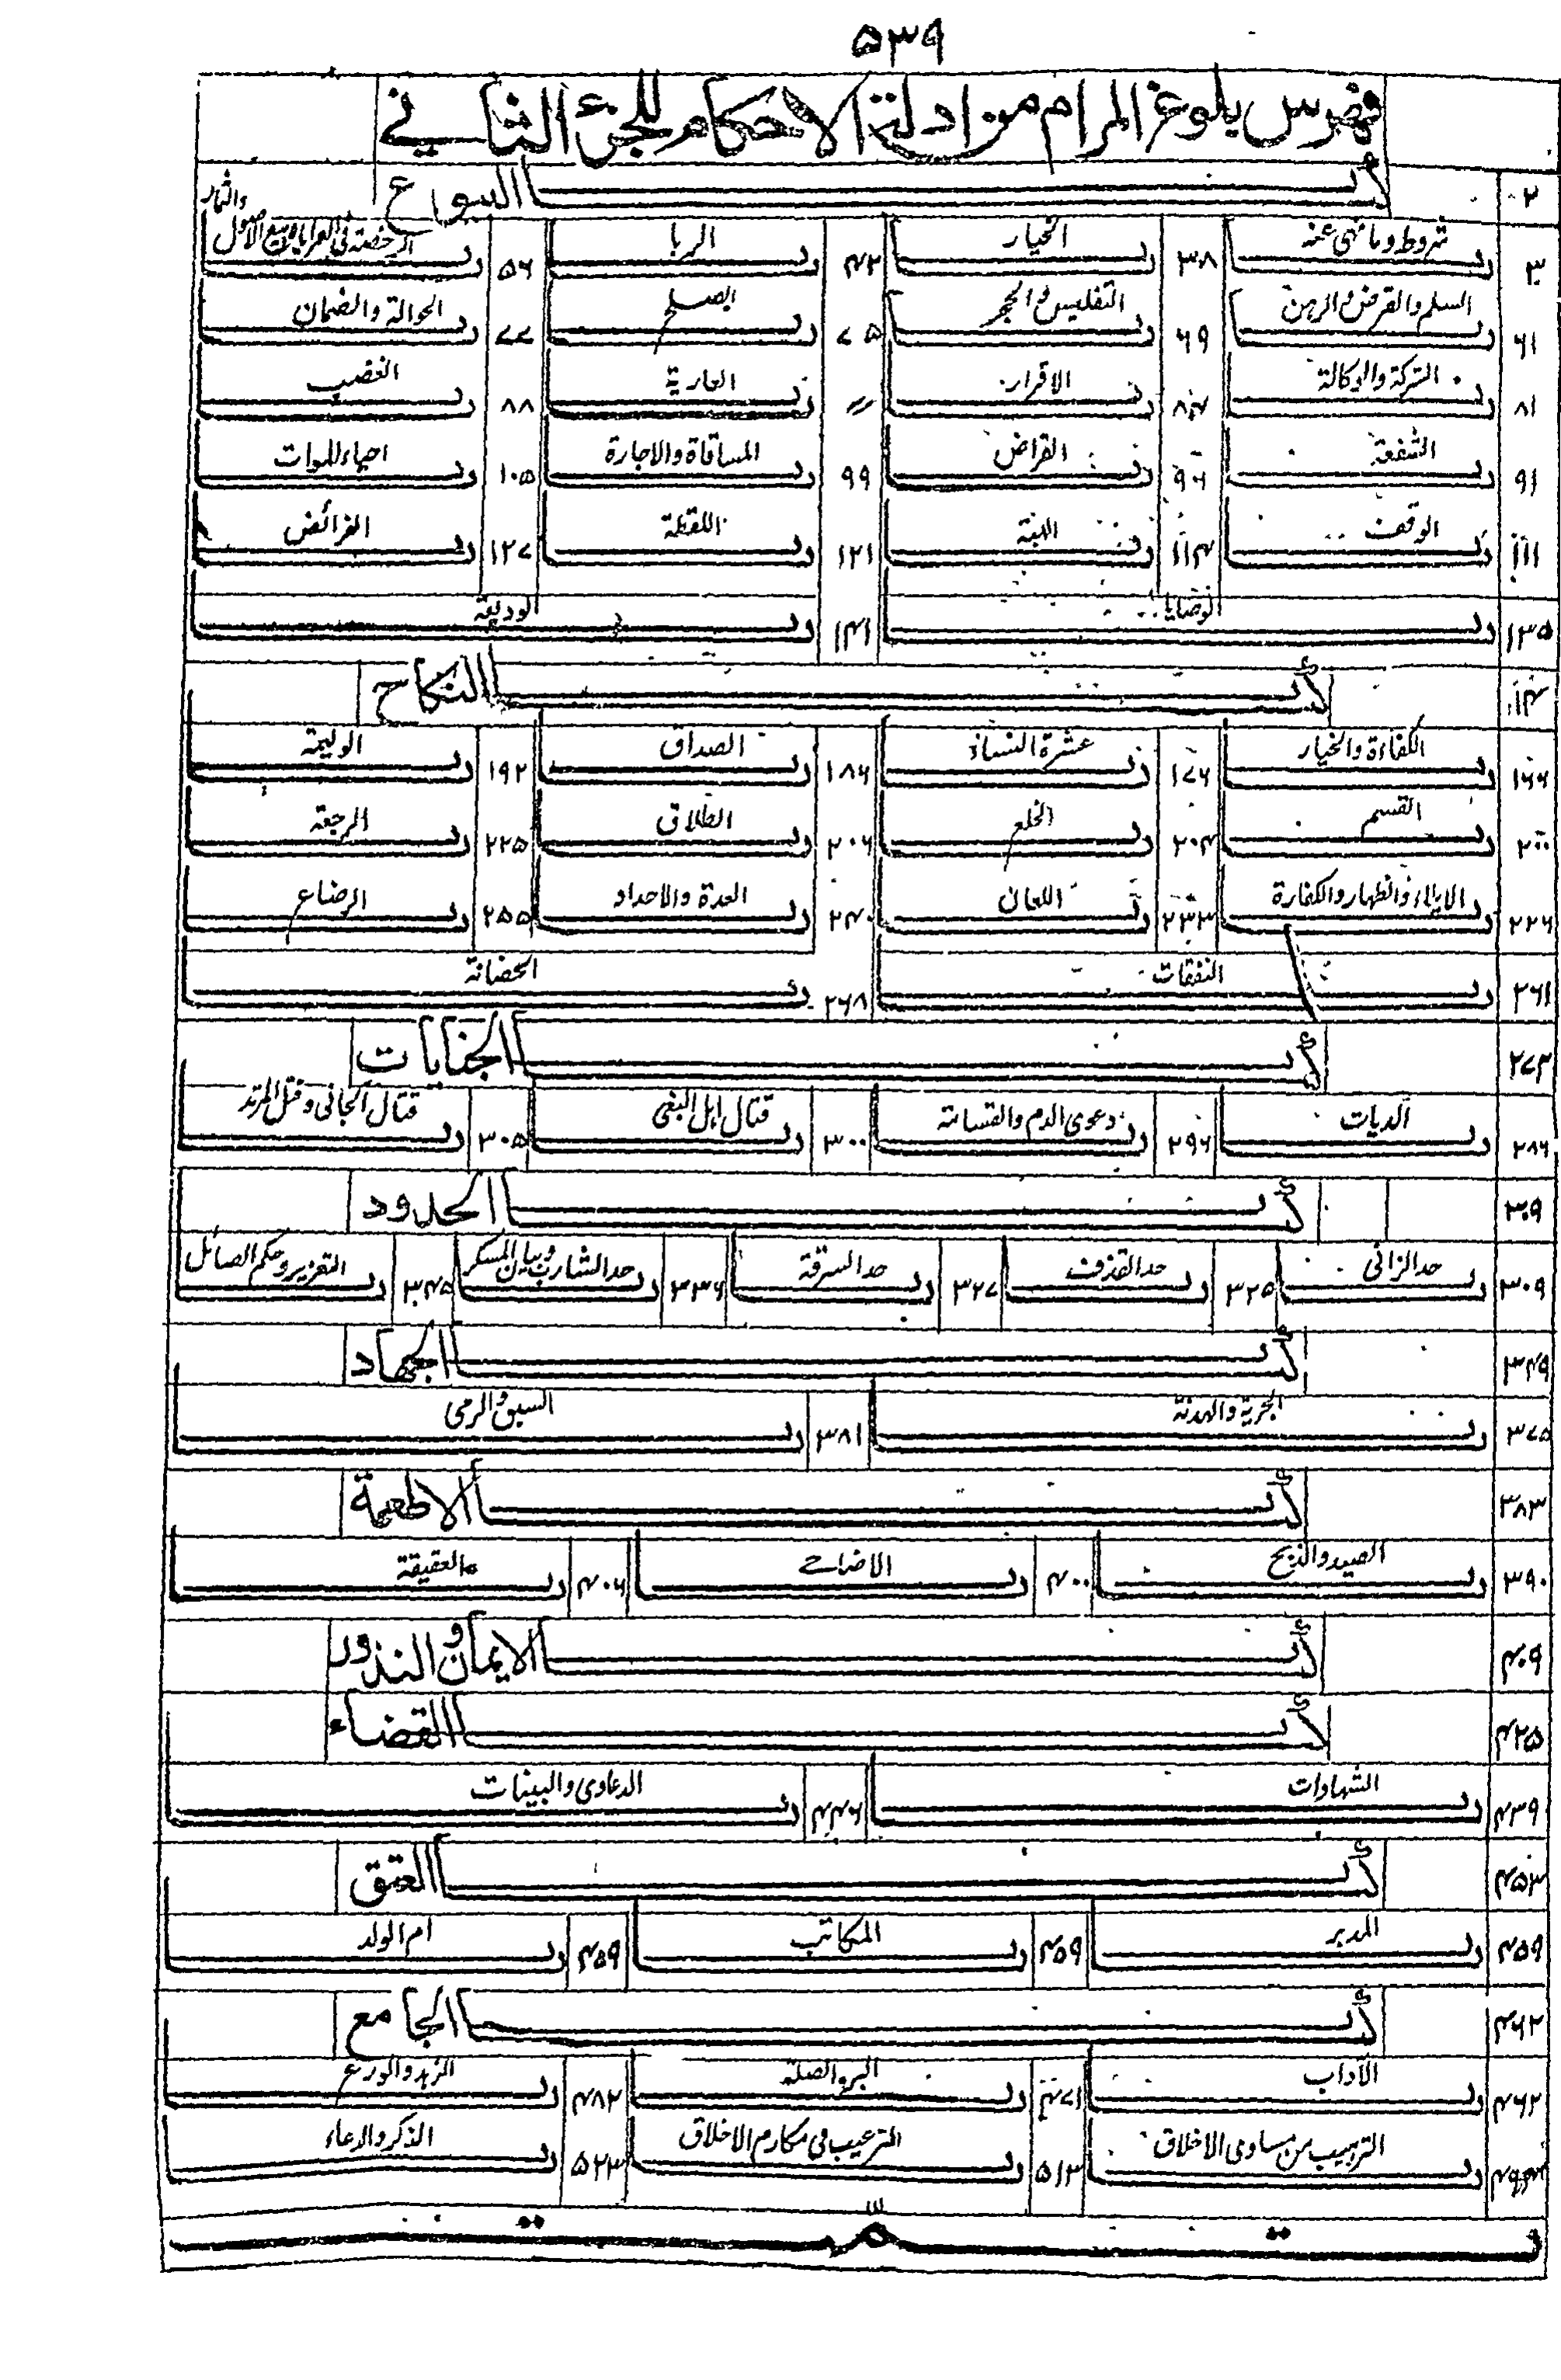 ۵۳۹
فهرس بلوغ المرام من ادلة الاحكام للجزء الثاني
۲ كتاب البيوع
۳ باب شروط وما نهى عنه ۳۸ باب الخيار ۴۲ باب الربا ۵۶ باب الرخصة في العرايا وبيع الاصول والثمار
۶۱ باب السلم والقرض والرهن ۶۹ باب التفليس والحجر ۷۵ باب الصلح ۷۷ باب الحوالة والضمان
۸۱ باب الشركة والوكالة ۸۴ باب الاقرار // باب العارية ۸۸ باب الغضب
۹۱ باب الشفعة ۹۶ باب القراض ۹۹ باب المساقاة والاجارة ۱۰۵ باب احياء الموات
۱۱۱ باب الوقف ۱۱۴ باب الهبة ۱۲۱ باب اللقطة ۱۲۷ باب الفرائض
۱۳۵ باب الوصايا ۱۴۱ باب الوديعة
كتاب النكاح
۱۶۶ باب الكفاءة والخيار ۱۷۶ باب عشرة النساء ۱۸۶ باب الصداق ۱۹۲ باب الوليمة
۲۰۰ باب القسم ۲۰۴ باب الخلع ۲۰۶ باب الطلاق ۲۲۵ باب الرجعة
۲۲۶ باب الايلاء والظهار والكفارة ۲۳۳ باب اللعان ۲۴۰ باب العدة والاحداد ۲۵۵ باب الرضاع
۲۶۱ باب النفقات ۲۶۸ باب الحضانة
۲۷۳ كتاب الجنايات
۲۸۶ باب الديات ۲۹۶ باب دعوى الدم والقسامة ۳۰۰ باب قتال اهل البغى ۳۰۵ باب قتال الجانى وقتل المرتد
۳۰۹ كتاب الحدود
۳۰۹ باب حد الزانى ۳۲۵ باب حد القذف ۳۲۷ باب حد السرقة ۳۳۶ باب حد الشارب وبيان المسكر ۳۴۵ باب التعزير وحكم الصائل
۳۴۹ كتاب الجهاد
۳۷۵ باب الجزية والهدنة ۳۸۱ باب السبق والرمى
۳۸۳ كتاب الاطعمة
۳۹۰ باب الصيد والذبح ۴۰۰ باب الاضاحي ۴۰۶ باب العقيقة
۴۰۹ كتاب الايمان والنذور
۴۲۵ كتاب القضاء
۴۳۹ باب الشهادات ۴۴۶ باب الدعاوى والبينات
۴۵۳ كتاب العتق
۴۵۹ باب المدبر ۴۵۹ باب المكاتب ۴۵۹ باب ام الولد
۴۶۲ كتاب الجامع
۴۶۲ باب الآداب ۴۷۱ باب البر والصلة ۴۸۲ باب الزهد والورع
باب الترهيب من مساوى الاخلاق ۵۱۳ باب الترغيب في مكارم الاخلاق ۵۲۳ باب الذكر والدعاء
تمت